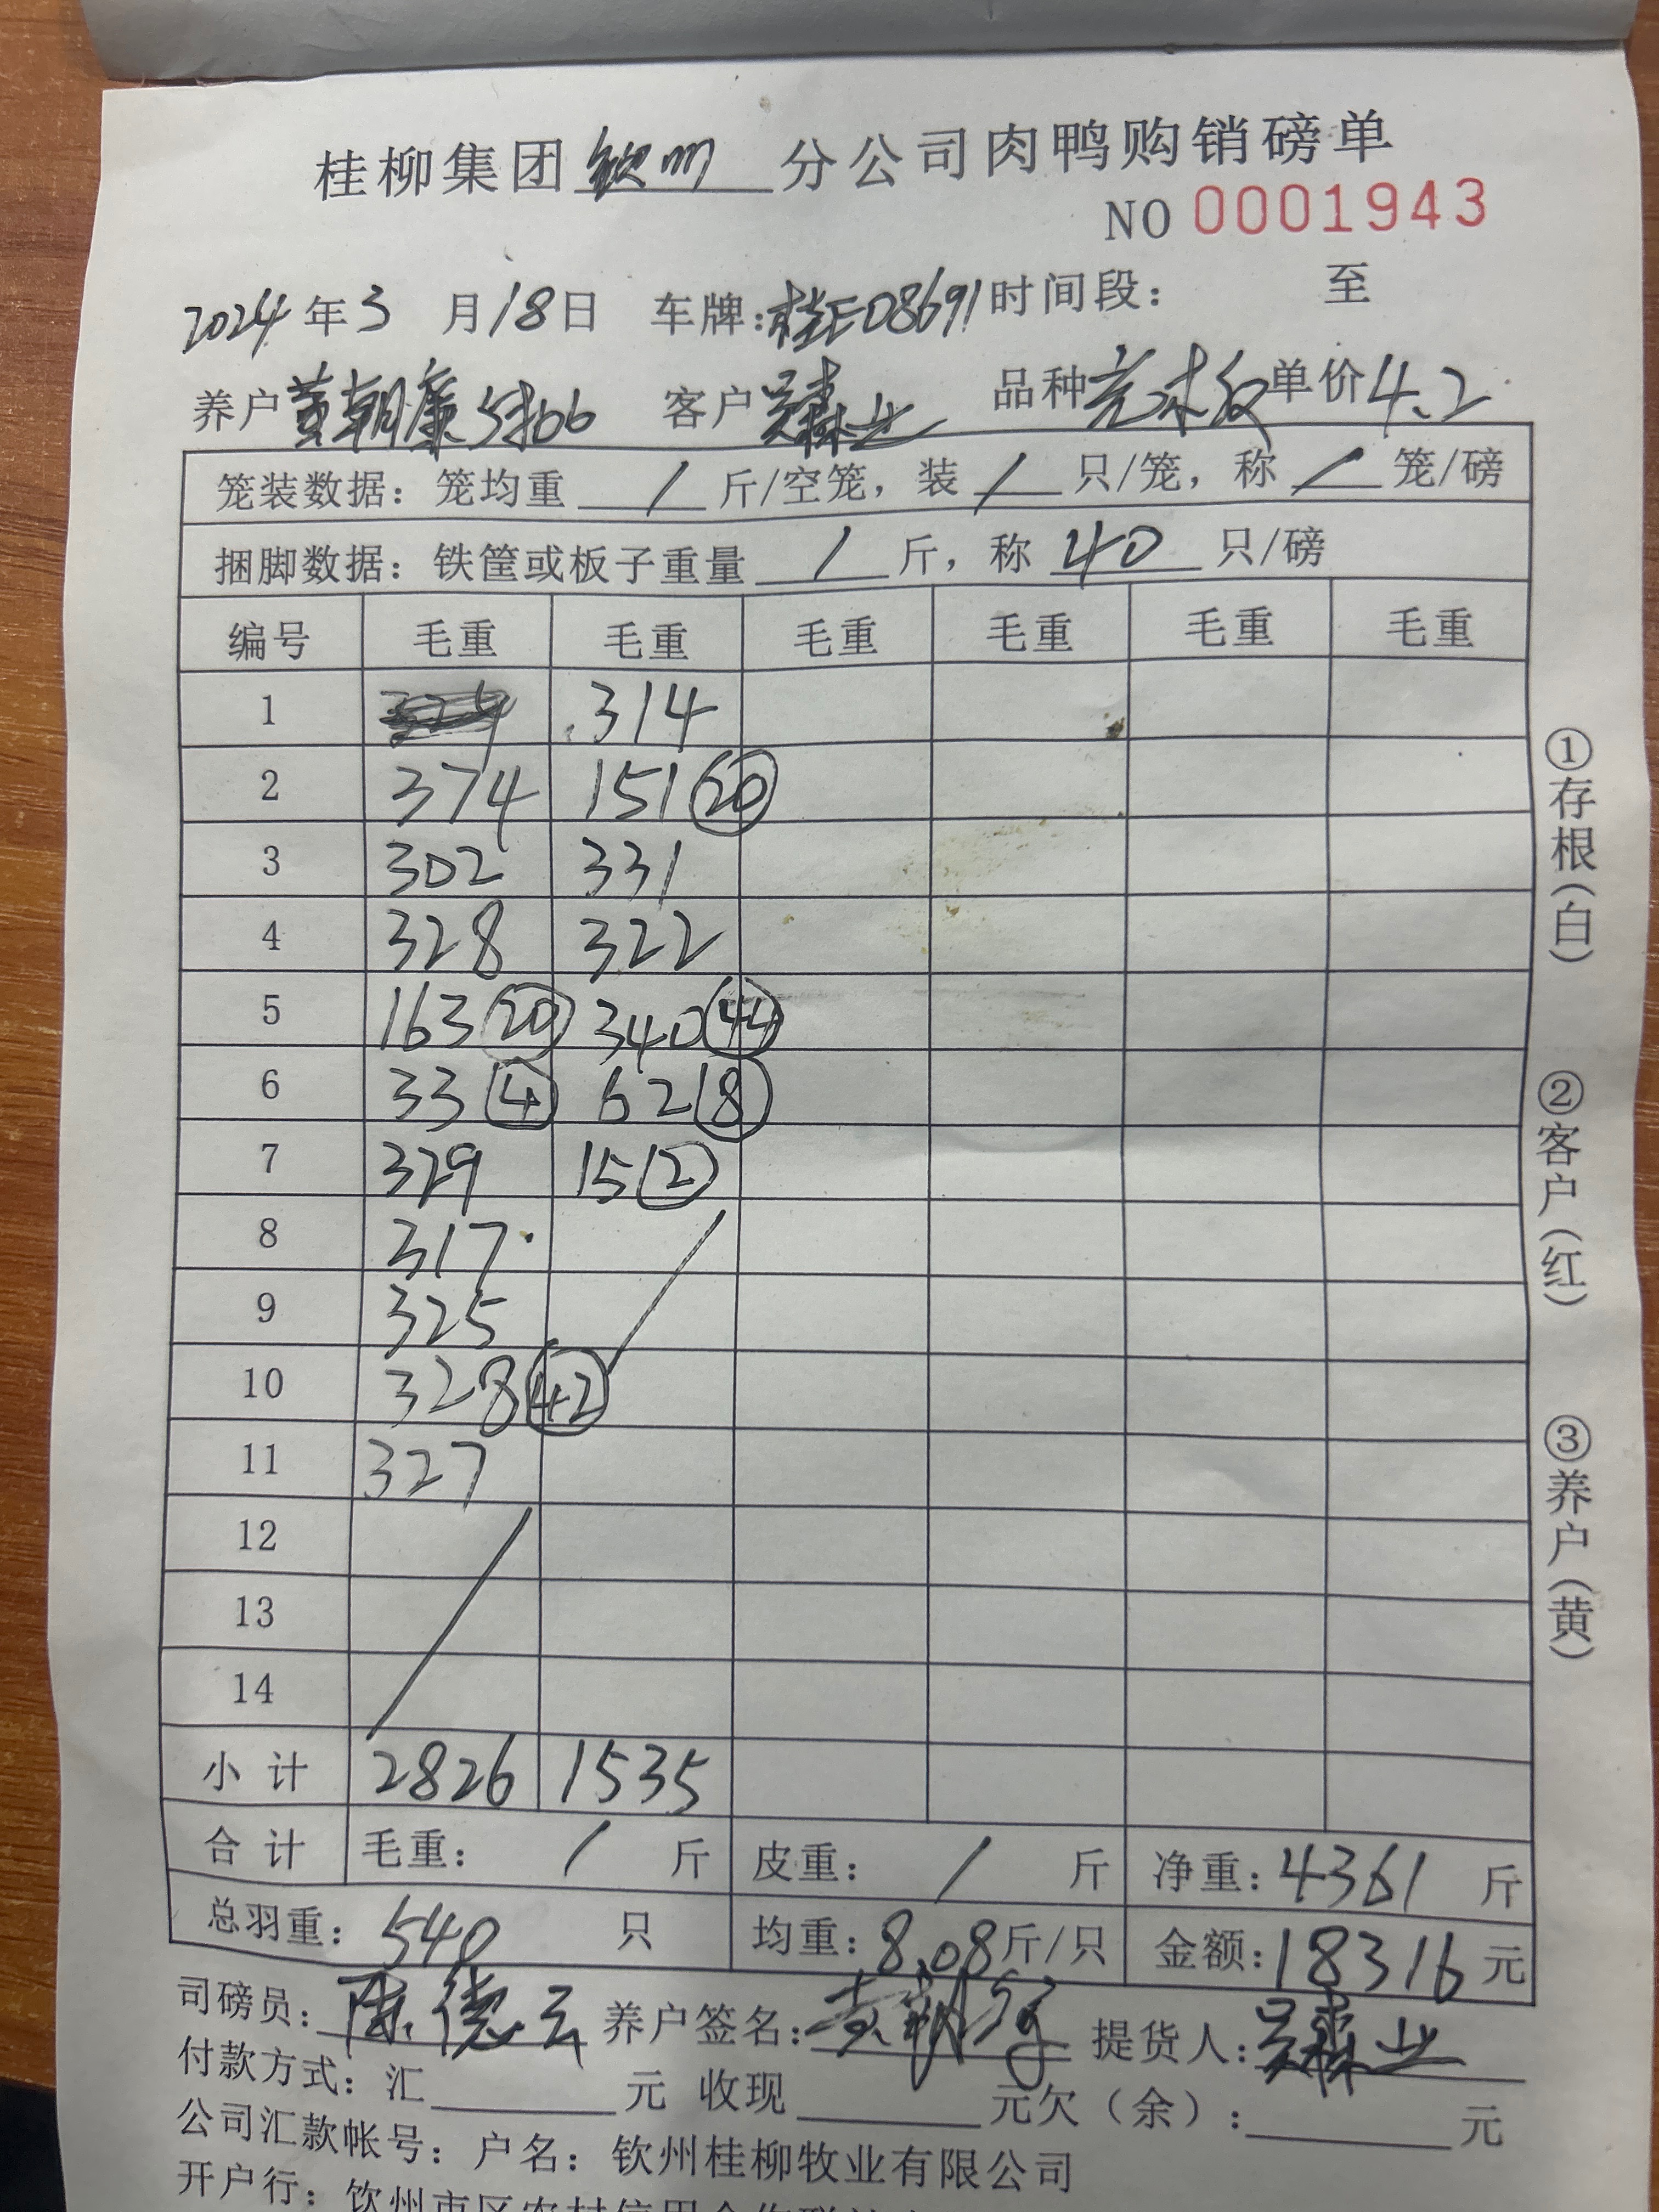 桂柳集团钦州分公司肉鸭购销磅单
NO 0001943
2024年3月18日 车牌:桂E08691时间段: 至
养户黄朝廉 客户吴森业 品种 单价4.2
笼装数据: 笼均重 / 斤/空笼, 装 / 只/笼, 称 / 笼/磅
捆脚数据: 铁筐或板子重量 / 斤, 称 40 只/磅
编号 毛重 毛重 毛重 毛重 毛重 毛重
1 314
2 374 151 20
3 302 331
4 328 322
5 163 20 340 44
6 33 4 62 8
7 329 15 2
8 317
9 325
10 328 42
11 327
12
13
14
小计 2826 1535
合计 毛重: / 斤 皮重: / 斤 净重:4361 斤
总羽重: 540 只 均重:8.08斤/只 金额:18316元
司磅员:陈德云 养户签名: 提货人:吴森业
付款方式: 汇 元 收现 元欠(余): 元
公司汇款帐号: 户名: 钦州桂柳牧业有限公司
开户行:
①存根(白)
②客户(红)
③养户(黄)